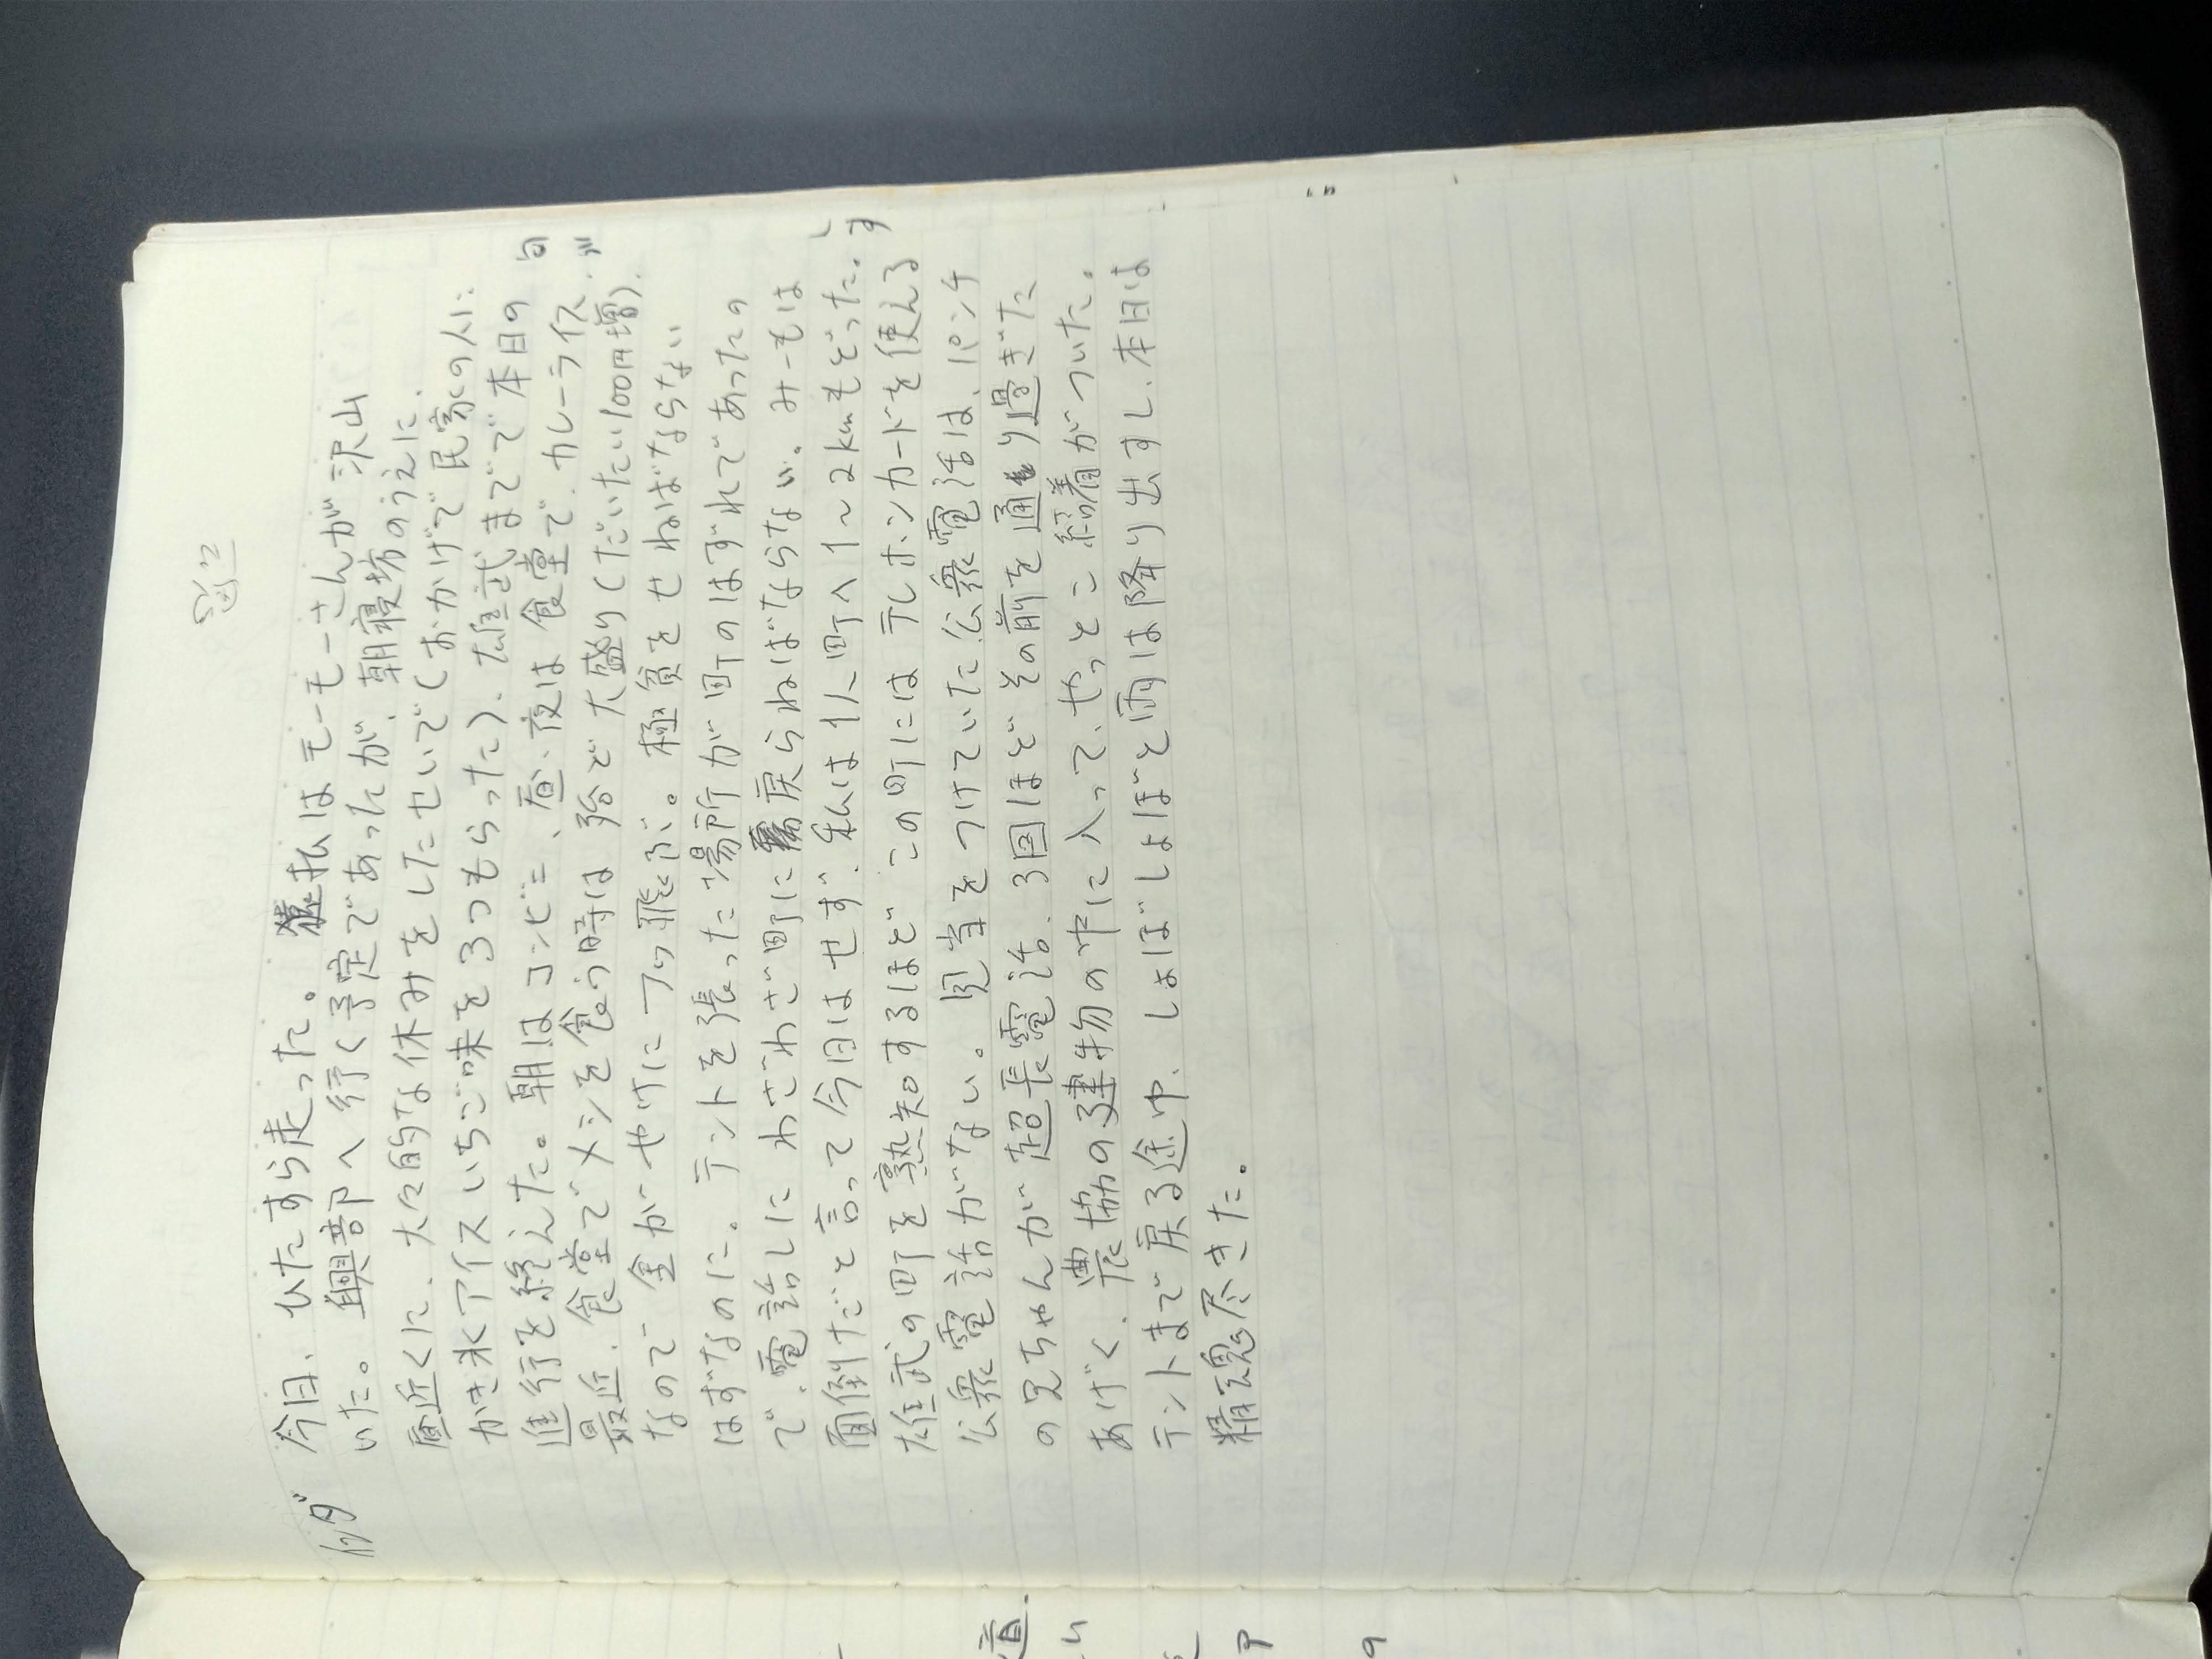 8/12
今日、ひたすら走った。猿払はモーモーさんが沢山
いた。興部へ行く予定であったが、朝寝坊のうえに、
昼近くに、大々的な休みをしたせいで(おかげで民家の人に
かき氷アイスいちご味を3つもらった)、雄武までで本日の
進行を終えた。朝はコンビニ、昼、夜は食堂で、カレーライス。
最近、食堂でメシを食う時は殆どで大盛り(だいたい100円増)。
なので金がやけにフッ飛ぶ。極貧をせねばならない
はずなのに。テントを張った場所が町のはずれであったの
で、電話しにわざわざ町に戻らねばならない。みーもは
面倒だと言って今日はせず、私は1人町へ1〜2kmもどった。
雄武の町を熟知するほどこの町にはテレホンカードを使える
公衆電話がない。見当をつけていた公衆電話は、パンチ
の兄ちゃんが超長電話、3回ほどその前を通り過ぎた
あげく、農協の建物の中に入って、やっとこ結着がついた。
テントまで戻る途中、しょぼしょぼと雨は降り出すし、本日は
精魂尽きた。